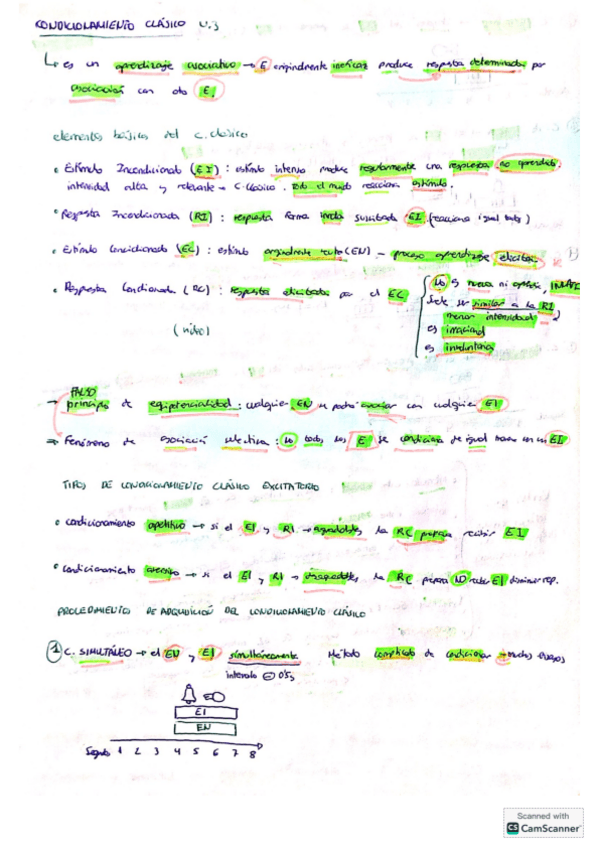 CONDICIONAMIENTO CLÁSICO U.3
↳ es un aprendizaje asociativo → E originalmente ineficaz produce respuesta determinada por
asociación con otro E.
elementos básicos del C. clásico
• Estímulo Incondicionado (EI): estímulo intenso produce regularmente una respuesta no aprendida,
intensidad alta y relevante → C. clásico. todo el mundo reacciona estímulo.
• Respuesta Incondicionada (RI): respuesta forma innata suscitada EI (reacciona igual
• Estímulo Condicionado (EC): estímulo originalmente neutro (EN) - proceso aprendizaje elicitar
• Respuesta Condicionada (RC): respuesta elicitada por el EC
No es nueva ni INNATA
Suele ser similar a la RI
menor intensidad
es irracional
es involuntaria
FALSO
→ principio de equipotencialidad: cualquier EN se podrá asociar con cualquier EI
⇒ Fenómeno de asociación selectiva: No todos los E se condiciona de igual con un EI
TIPOS DE CONDICIONAMIENTO CLÁSICO EXCITATORIO
• condicionamiento apetitivo → si el EI y RI → agradables, la RC prepara recibir EI
• condicionamiento aversivo → si el EI y RI → desagradables, la RC prepara NO EI
PROCEDIMIENTOS DE ADQUISICIÓN DEL CONDICIONAMIENTO CLÁSICO
1 C. SIMULTÁNEO → el EN y EI simultáneamente Método complicado de condicionar → muchos ensayos
intervalo 0'5s
EI
EN
Segundos 1 2 3 4 5 6 7 8
Scanned with
CS CamScanner